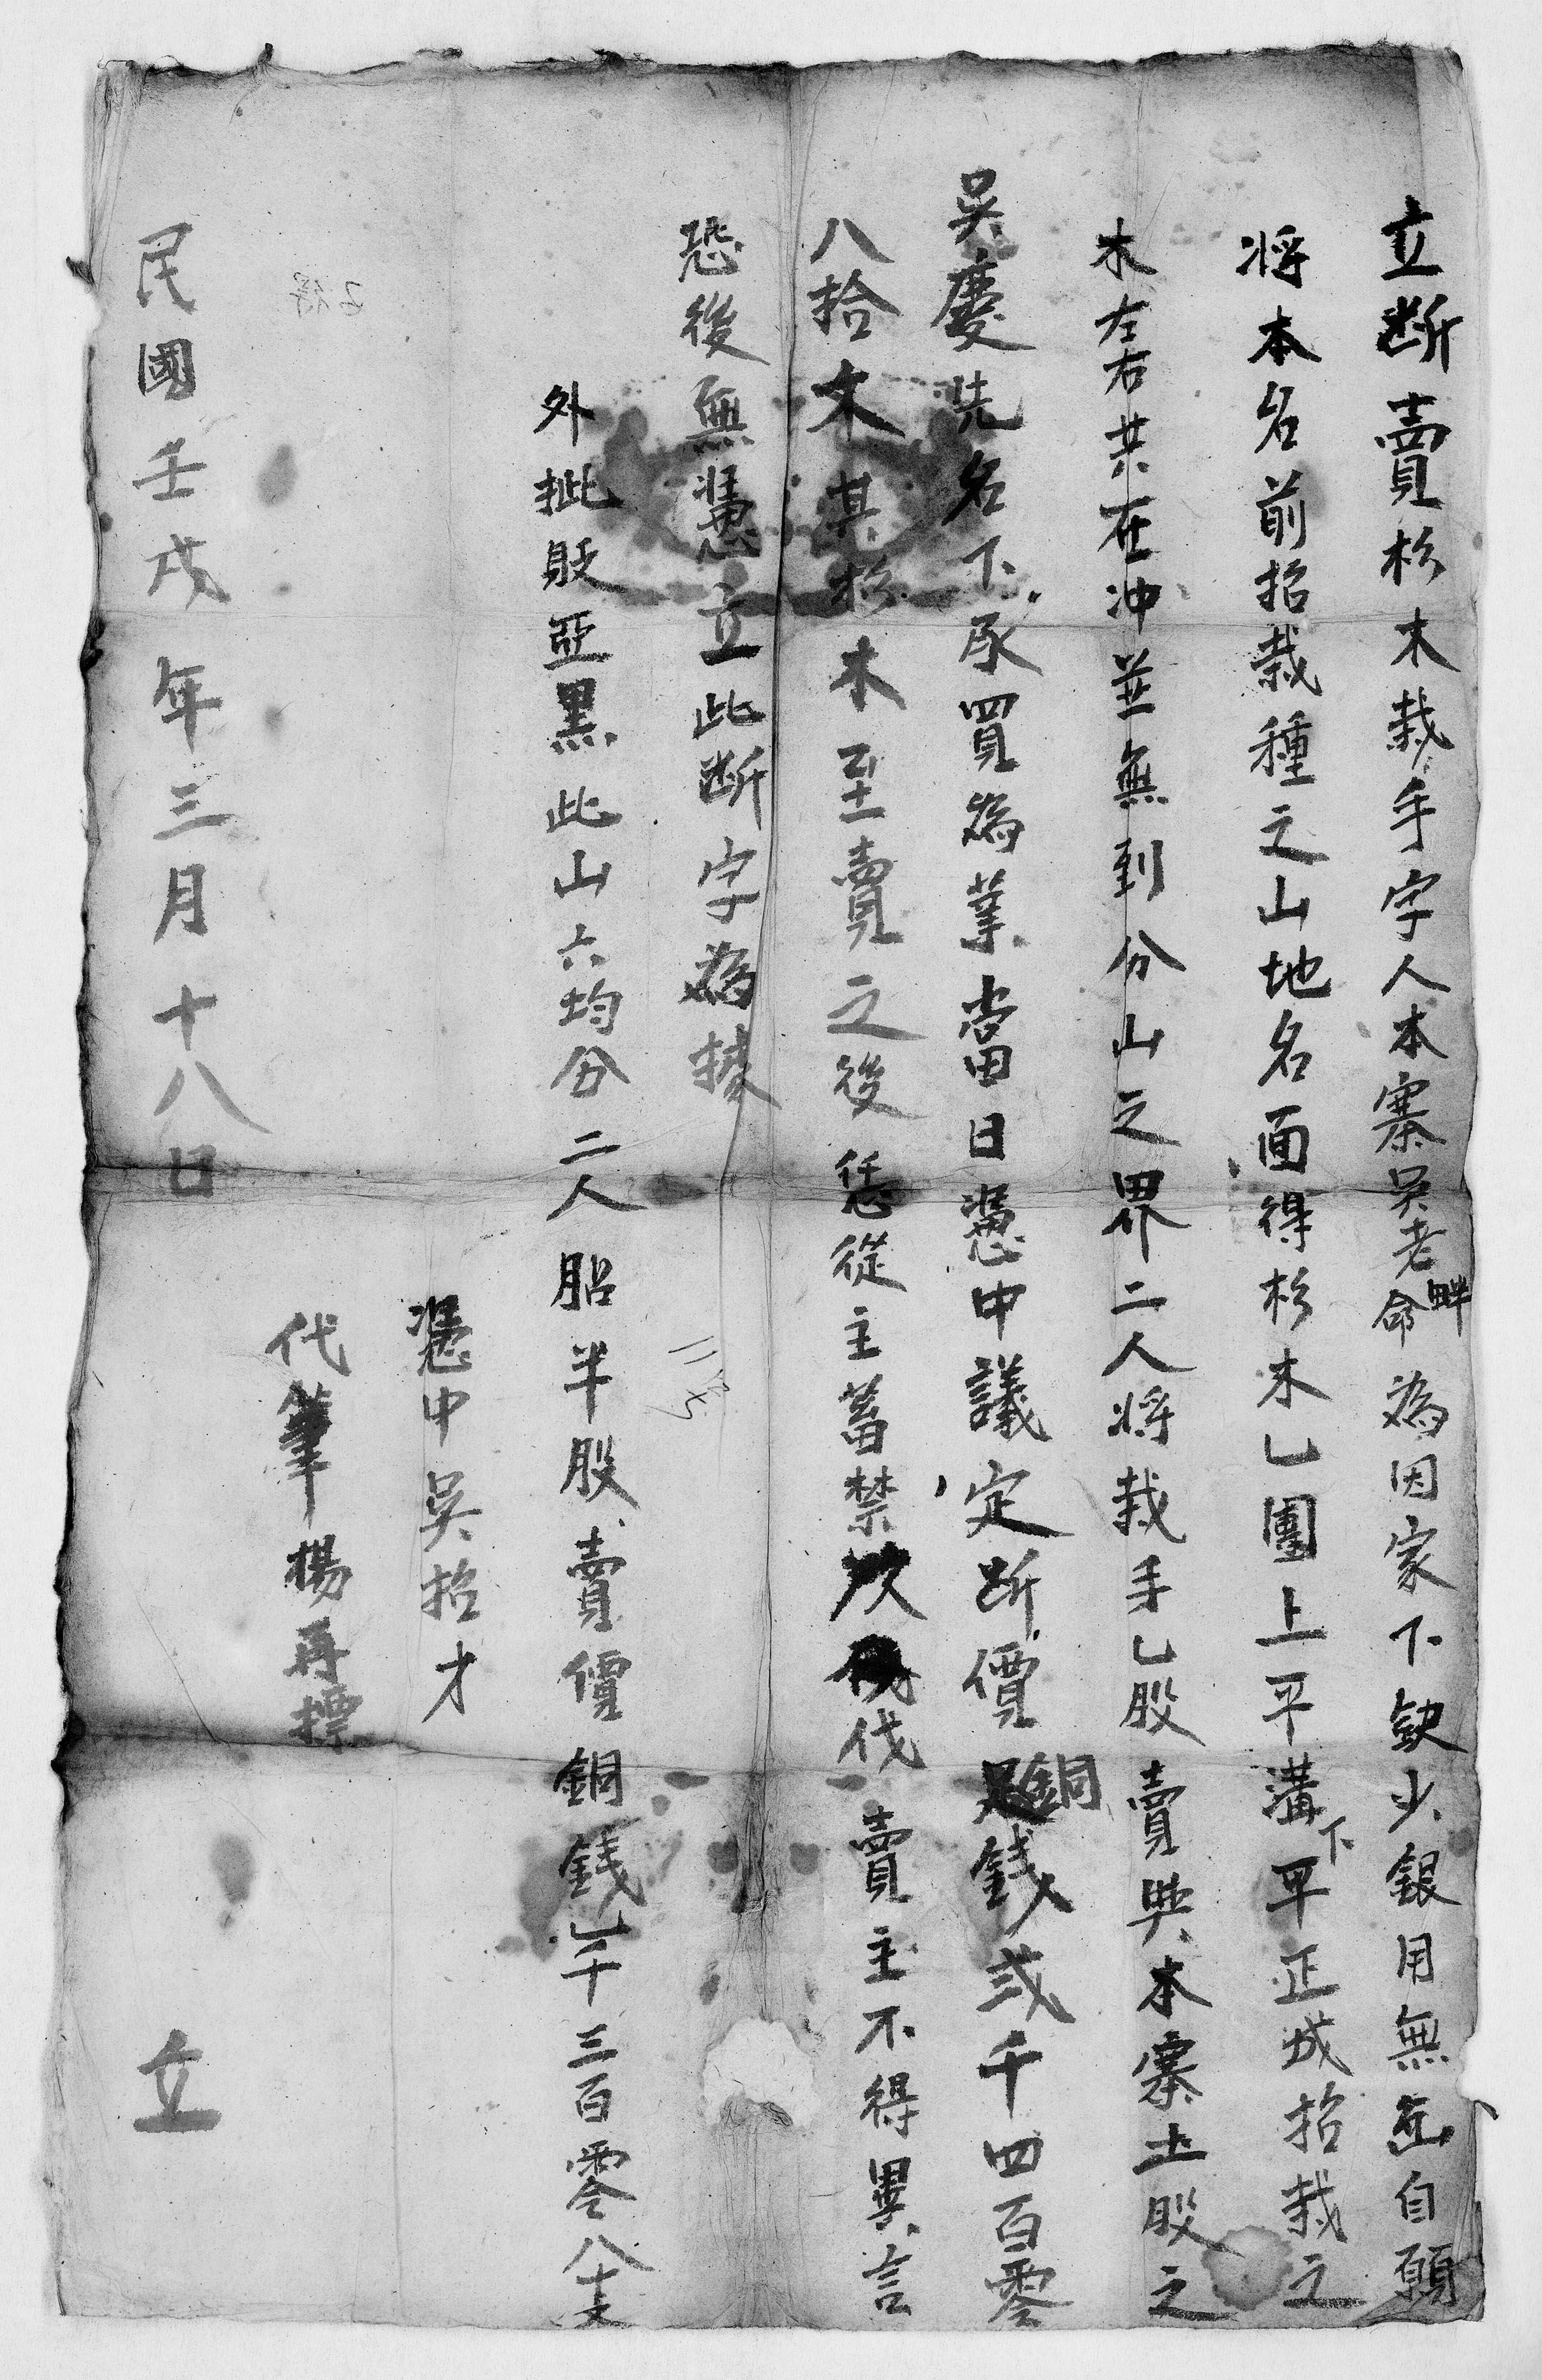 立断賣杉木栽手字人本寨吳老命畔為因家下缺少銀用無出自願
將本名前招栽種之山地名面得杉木乚團上平溝下平正成招栽之
木左右共在冲並無到分山之界二人將栽手乚股賣與本寨土股之
吳慶先名下承買為業當日憑中議定断價銅錢弍千四百零
八拾文其杉木至賣之後恁從主蓄禁砍伐賣主不得異言
恐後無憑立此断字為據
外批股亞黑此山六均分二人胎半股賣價銅錢乚千三百零八十文
憑中吳招才
代筆楊再標
民國壬戌年三月十八日立